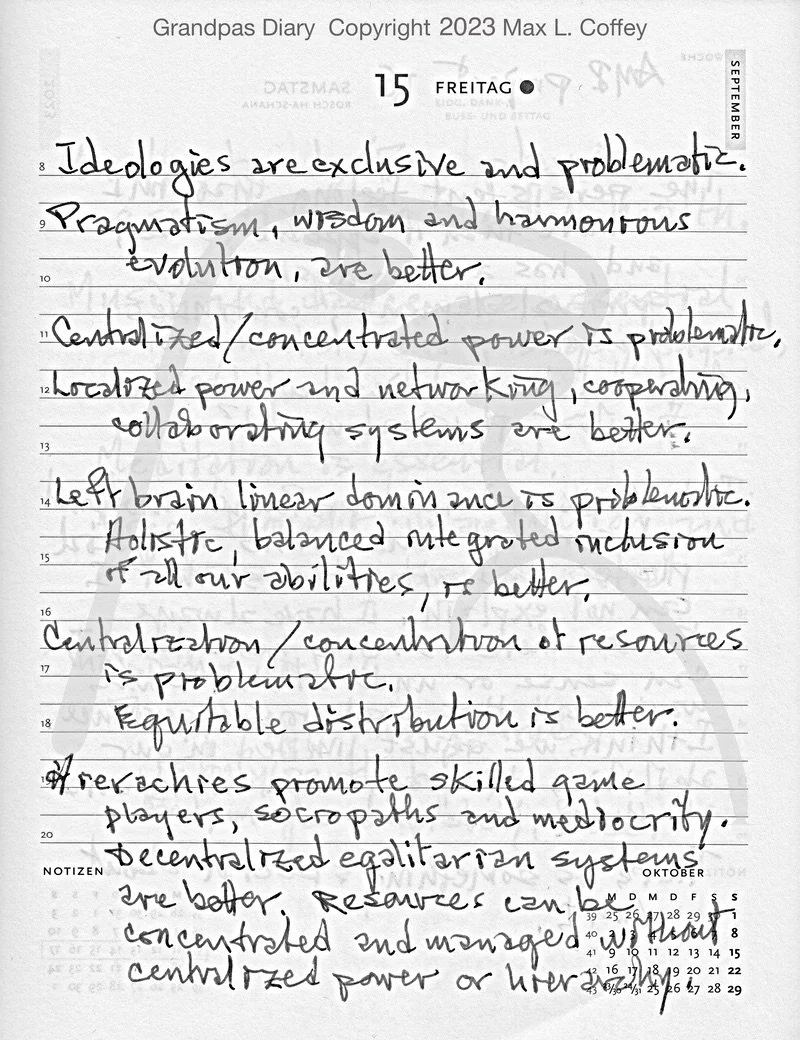 Grandpas Diary Copyright 2023 Max L. Coffey
15 FREITAG
SEPTEMBER
8 Ideologies are exclusive and problematic.
9 Pragmatism, wisdom and harmonious
evolution, are better.
10
11 Centralized/concentrated power is problematic.
12 Localized power and networking, cooperating,
collaborating systems are better.
13
14 Left brain linear dominance is problematic.
Holistic, balanced integrated inclusion
15
of all our abilities, is better.
16
Centralization/concentration of resources
17 is problematic.
18 Equitable distribution is better.
19 Hierachies promote skilled game
players, sociopaths and mediocrity.
20
Decentralized egalitarian systems
NOTIZEN
OKTOBER
are better. Resources can be
M D M D F S S
39 25 26 27 28 29 30 1
concentrated and managed without
40 2 3 4 5 6 7 8
41 9 10 11 12 13 14 15
centralized power or hierarchy.
42 16 17 18 19 20 21 22
43 23/30 24/31 25 26 27 28 29